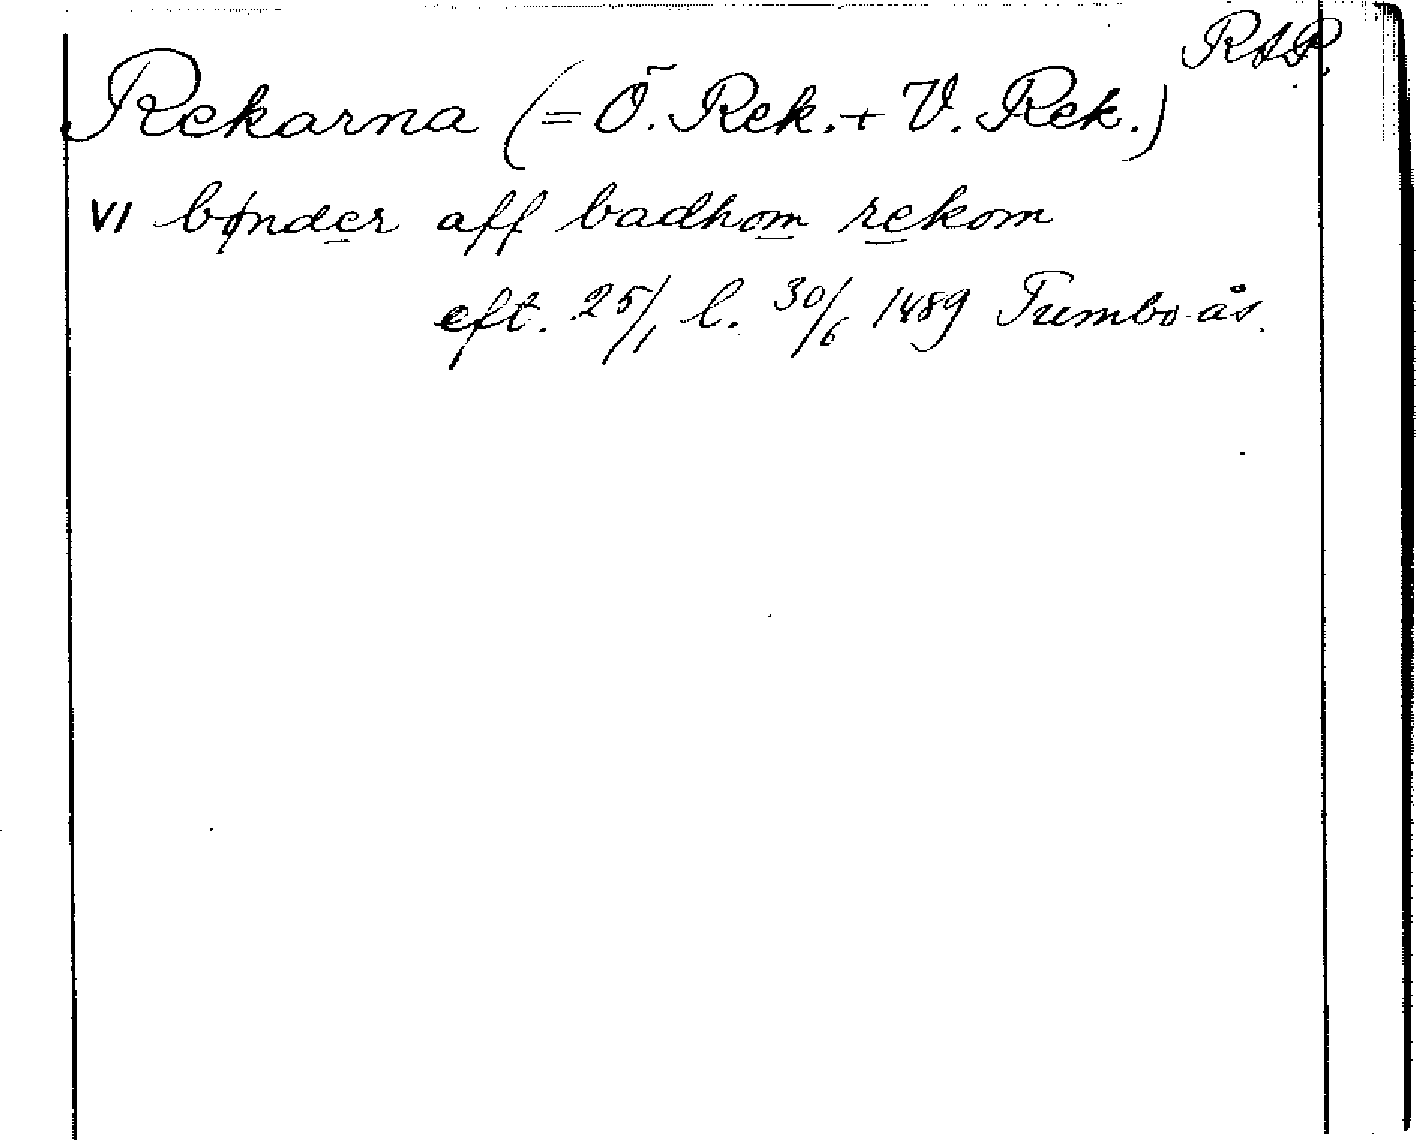 RAP.
Rekarna (= Ö. Rek. + V. Rek.)
VI bønder aff badhom rekom
eft. 25/1 l. 30/6 1489 Tumbo ås.